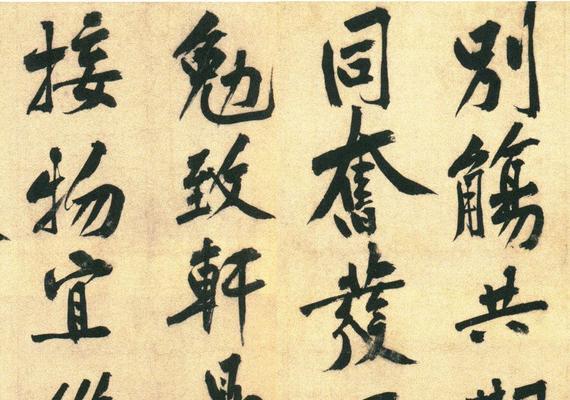 別觴共
同奮發
勉致軒
接物宜